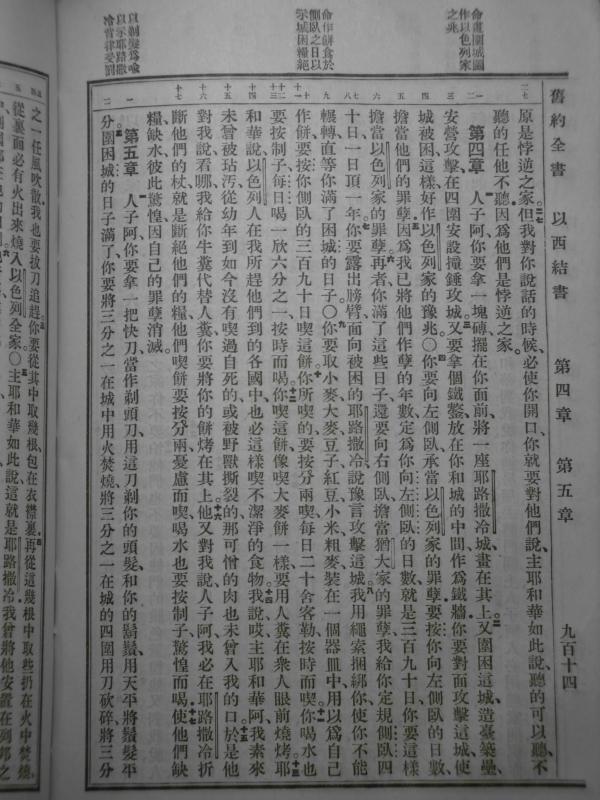 舊約全書 以西結書 第四章 第五章 九百十四
命畫圍城圖
作以色列家
之兆
命作餅食於
側臥之日以
示城困糧絕
以剃髮爲喻
以示耶路撒
原是悖逆之家但我對你說話的時候、必使你開口、你就要對他們說、主耶和華如此說、聽的可以聽、不
聽的任他不聽、因爲他們是悖逆之家。
第四章 人子阿、你要拿一塊磚、擺在你面前、將一座耶路撒冷城畫在其上。又圍困這城、造臺築壘、
安營攻擊、在四圍安設撞錘攻城、又要拿個鐵鏊、放在你和城的中間、作爲鐵牆、你要對面攻擊這城、使
城被困、這樣、好作以色列家的豫兆。〇你要向左側臥、承當以色列家的罪孽、要按你向左側臥的日數、
擔當他們的罪孽。因爲我已將他們作孽的年數、定爲你向左側臥的日數、就是三百九十日、你要這樣
擔當以色列家的罪孽。再者、你滿了這些日子、還要向右側臥、擔當猶大家的罪孽、我給你定規側臥四
十日、一日頂一年。你要露出膀臂、面向被困的耶路撒冷、說豫言攻擊這城。我用繩索捆綁你、使你不能
輾轉、直等你滿了困城的日子。〇你要取小麥、大麥、豆子、紅豆、小米、粗麥、裝在一個器皿中、用以爲自己
作餅、要按你側臥的三百九十日喫這餅。你所喫的、要按分兩喫、每日二十舍客勒、按時而喫。你喝水也
要按制子、每日喝一欣六分之一、按時而喝。你喫這餅、像喫大麥餅一樣、要用人糞在衆人眼前燒烤。耶
和華說、以色列人在我所趕他們到的各國中、也必這樣喫不潔淨的食物。我說、哎、主耶和華阿、我素來
未曾被玷污、從幼年到如今沒有喫過自死的、或被野獸撕裂的、那可憎的肉、也未曾入我的口。於是他
對我說、看哪、我給你牛糞代替人糞、你要將你的餅烤在其上。他又對我說、人子阿、我必在耶路撒冷折
斷他們的杖、就是斷絕他們的糧、他們喫餅、要按分兩、憂慮而喫、喝水也要按制子、驚惶而喝、使他們缺
糧缺水、彼此驚惶、因自己的罪孽消滅。
第五章 人子阿、你要拿一把快刀、當作剃頭刀、用這刀剃你的頭髮和你的鬍鬚、用天平將鬚髮平
分。圍困城的日子滿了、你要將三分之一、在城中用火焚燒、將三分之一、在城的四圍用刀砍碎、將三分
之一、任風吹散、我也要拔刀追趕。你要從其中取幾根包在衣襟裏、再從這幾根中取些扔在火中焚燒、
從裏面必有火出來、燒入以色列全家。〇主耶和華如此說、這就是耶路撒冷、我曾將他安置在列邦之